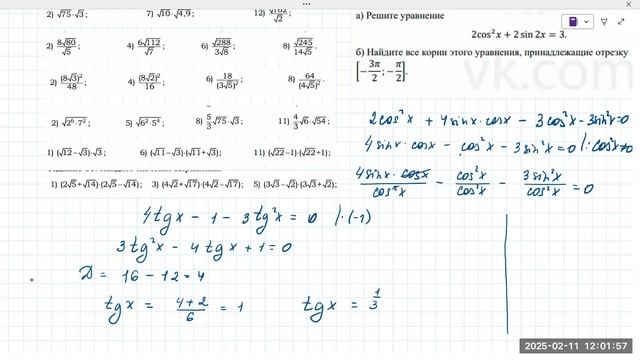 2) √75·√3;
7) √10·√4,9;
12) √2
2) 8√80/√5;
4) 6√112/√7;
6) √288/3√8;
8) √245/14√5.
2) (8√3)²/48;
4) (8√2)²/16;
6) 18/(3√5)²;
8) 64/(4√5)².
2) √2⁶·7²;
5) √6²·5⁴;
8) 5/3 √75·√3;
11) 4/3 √6·√54;
1) (√12−√3)·√3;
6) (√11−√3)·(√11+√3);
11) (√22−1)·(√22+1);
1) (2√5+√14)(2√5−√14);
3) (4√2+√17)(4√2−√17);
5) (3√3−√2)(3√3+√2);
а) Решите уравнение
2cos²x + 2 sin 2x = 3.
б) Найдите все корни этого уравнения, принадлежащие отрезку
[−3π/2; −π/2].
vk.com
2cos²x + 4sinx·cosx − 3cos²x − 3sin²x=0
4sinx·cosx − cos²x − 3sin²x=0 |:cos²x≠0
4sinx·cosx/cos²x − cos²x/cos²x − 3sin²x/cos²x = 0
4tgx − 1 − 3tg²x = 0 |·(-1)
3tg²x − 4tgx + 1 = 0
D = 16 − 12 = 4
tgx = 4+2/6 = 1
tgx = 1/3
2025-02-11 12:01:57